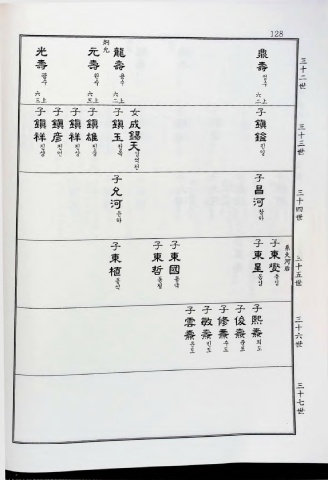 128
三十二世
鼎壽 정수
六二 上
龍壽 용수
六二 上
炯九
元壽 원수
六三 上
光壽 광수
六三 上
三十三世
子鎭鎰 진일
女成錫天
子鎭玉 진옥
子鎭雄 진웅
子鎭祥 진상
子鎭彦 진언
子鎭祥 진상
三十四世
子昌河 창하
子允河 윤하
三十五世
子東燮 동섭
子東星 동성
子東國 동국
子東哲 동철
子東植 동식
三十六世
子熙燾 희도
子俊燾 준도
子修燾 수도
子敏燾 민도
子雲燾 운도
三十七世